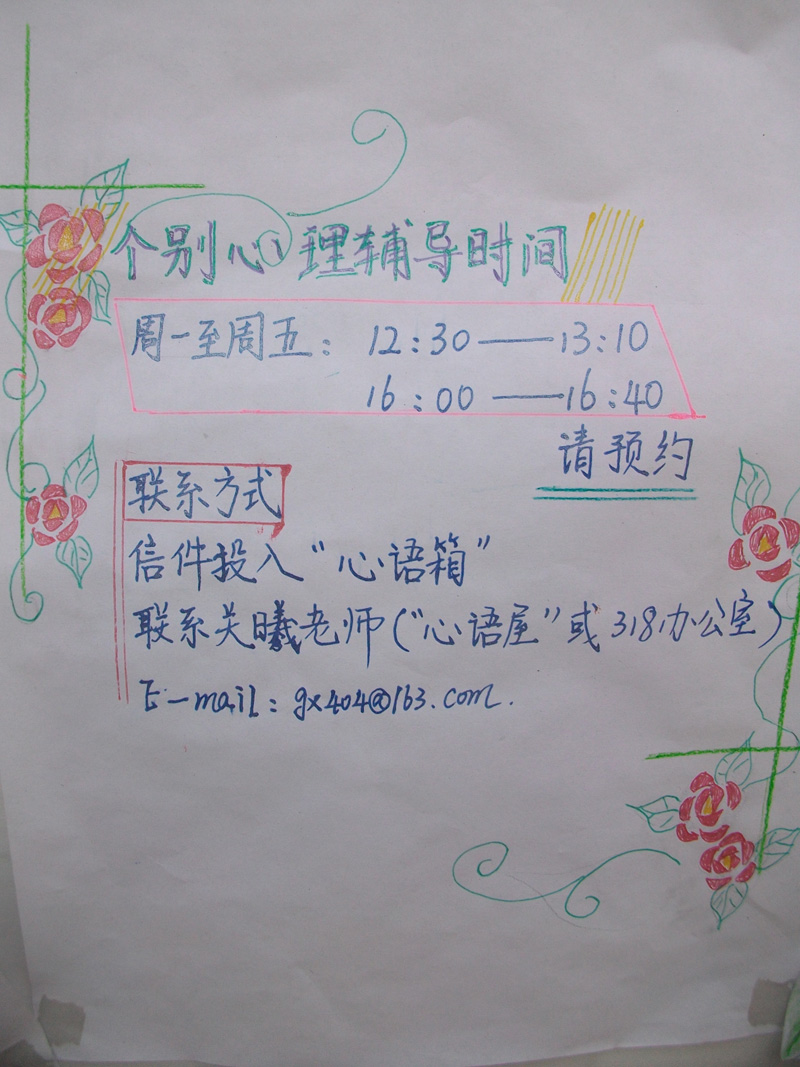 个别心理辅导时间
周一至周五：12:30——13:10
16:00——16:40
请预约
联系方式
信件投入“心语箱”
联系关曦老师（“心语屋”或318办公室）
E-mail：gx404@163.com.